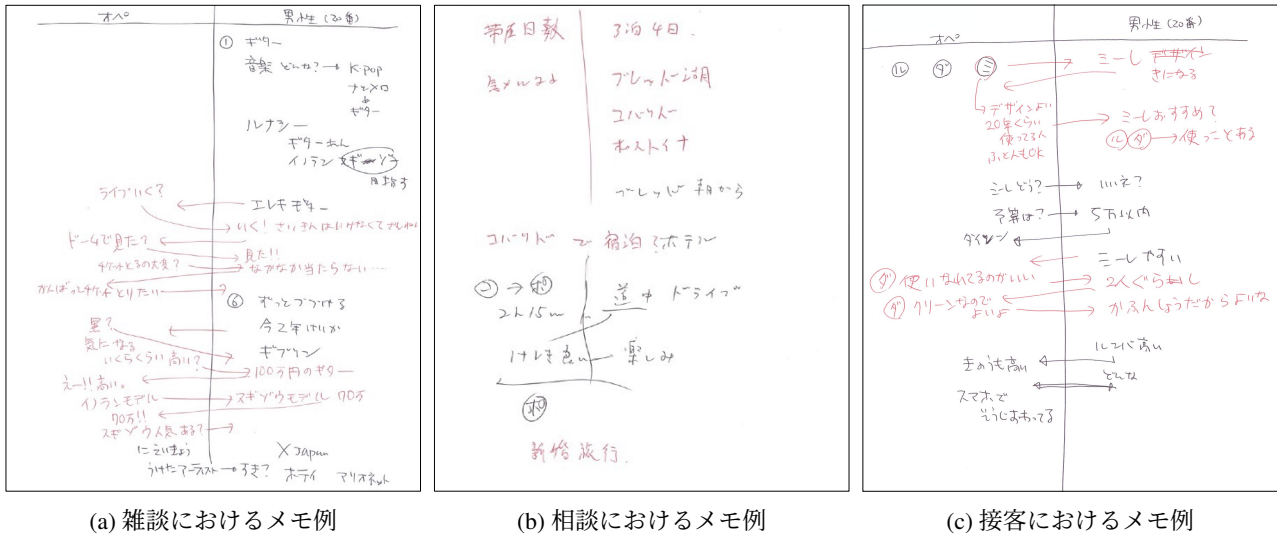 オペ
男性(20番)
① ギター
音楽 どんな?→ K-pop
ナツメロ
ギター
ルナシー
ギターさん
イノラン
目指す
ライブいく?
エレキギター
いく!さいきんはいけなくて
ドームで見た?
見た!!
チケットとるの大変?
なかなか当たらない……
がんばってチケットとりたい
⑥ ずっとつづける
今2年けいか
黒?
ギブソン
気になる
いくらくらい高い?
100万円のギター
えー!!高い。
イノランモデル
スギゾウモデル 70万
70万!!
スギゾウ人気ある?
にえいきょう
うけたアーティスト→すき?
X Japan
ホテイ マリオネット
(a) 雑談におけるメモ例
滞在日数
3泊4日.
ブレッド湖
コバリド
ポストイナ
ブレッド 朝から
コバリド で 宿泊?ホテル
コ → ポ
2h 15m
道中 ドライブ
けしき良い 楽しみ
ポ
新婚旅行.
(b) 相談におけるメモ例
オペ
男性(20番)
ル ダ ミ
ミーレ デザイン
きになる
デザインよい
20年くらい
使ってる人
ふとんもOK
ミーレおすすめ?
ル ダ → 使ったことある
ミーレどう?
いいえ?
予算は?
5万以内
ダイソン
ミーレやすい
ダ 使いなれてるのがいい
2人ぐらし
ダ クリーンなので
よいよ
かふんしょうだからよいな
ルンバ高い
きのうも高い
どんな
スマホで
そうじおわってる
(c) 接客におけるメモ例